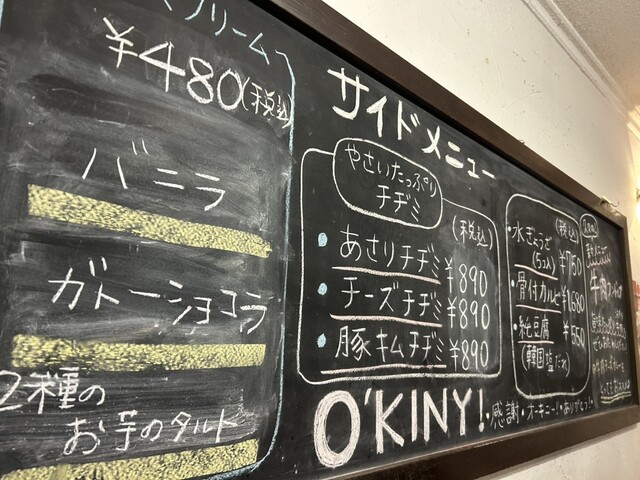 クリーム
¥480(税込)
バニラ
ガトーショコラ
2種の
お芋のタルト
サイドメニュー
やさいたっぷり
チヂミ
(税込)
・あさりチヂミ ¥890
・チーズチヂミ ¥890
・豚キムチヂミ ¥890
(税込)
・水ぎょうざ
(5コ入) ¥750
・骨付カルビ ¥1,680
・純豆腐 ¥550
(韓国塩だれ)
O'KINY!
・感謝・オーキニー!・ありがとう!・